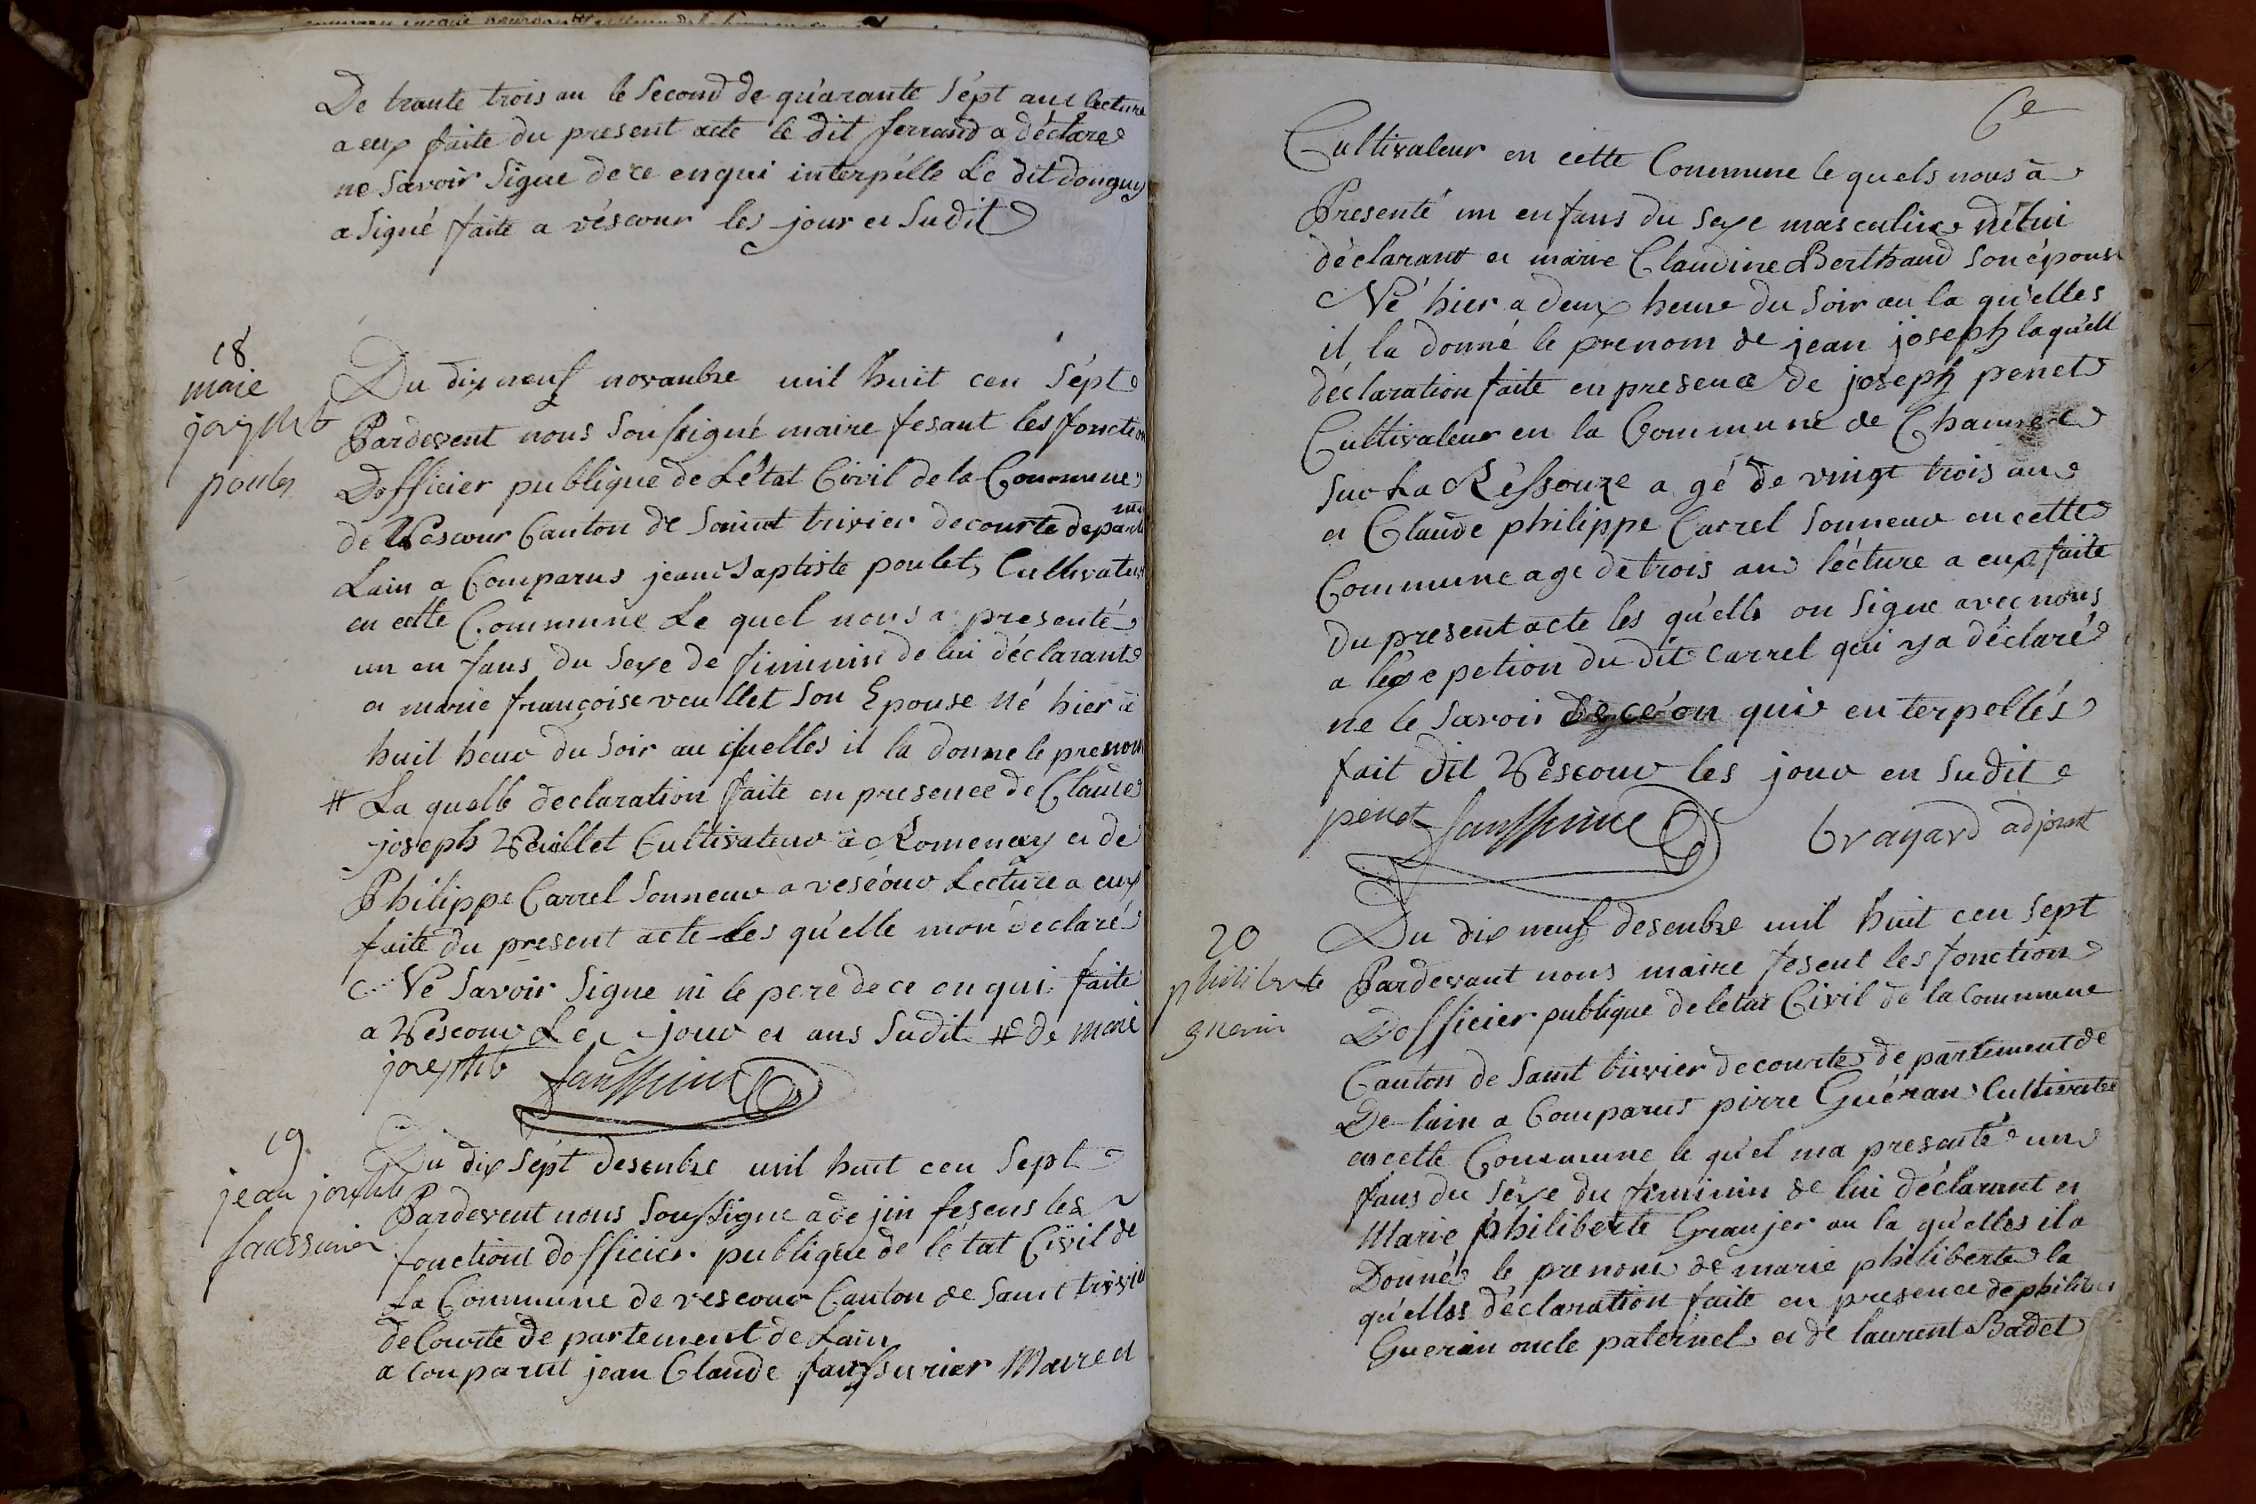 De trante trois an le second de quarante sépt ans lecture
a eux faite du present acte le dit ferrand a déclare
ne savoir signe de ce enqui interpélle Le dit donguy
a signé faite a véscour les jour et sudit
18
marie
josephte
poulet
Du dix neuf novanbre mil huit cen sépt
Pardevent nous soussigné maire fesant les fonction
Dofficier publique de Létat Civil de la Commune
de Véscour Canton de saint trivier de courte departement
Lain a Comparus jean Baptiste poulet Cultivateur
en cette Commune Le quel nous a presenté
un en fans du sexe de fiminin de lui déclarant
et marie françoise veullet son Epouse né hier a
huit heur du soir au quelles il la donne le prenom
# La quelle declaration faite en presence de Claude
joseph Veullet Cultivateur a Romenay et de
Philippe Carrel sonneur a veséour Lecture a eux
faite du present acte les qu'elle mon déclarés
Ne savoir signe ni le pere de ce en qui faite
a Vescour Les jour et ans sudit # de marie
josephte
19
jean joseph
faussurier
Du dix sépt desenbre mil huit cen sept
Pardevent nous soussigne ade jin fesens les
fonctions dofficier publique de létat Civil de
La Commune de vescour Canton de saint trivier
de Courte de partement de Lain
a comparut jean Claude faussurier Maire et
6e
Cultivateur en cette Commune le quels nous a
Presenté un enfans du sexe masculin de lui
déclarant et marie Claudine Berthaud son épouse
Né hier a deux heure du soir au la qu'elles
il la donné le prénom de jean joseph la qu'elle
déclaration faite en presence de joseph penet
Cultivateur en la Commune de
sur La Réssouze a gé de vingt trois ane
et Claude philippe Carrel sonneur en cette
Commune age de trois ans lécture a eux faite
du present acte les qu'elle on signe avec nous
a lexepetion du dit carrel qui y a déclaré
ne le savoir de ce on qui enterpellés
fait dit Véscour les jour en sudit
penet faussurier
brayard adjoint
20
philiberte
guerin
Du dix neuf desenbre mil huit cen sept
Pardevant nous maire fesent les fonction
Dofficier publique de létat Civil de la Commune
Canton de saint trivier de courtes de partement de
De lain a Comparus pirre Guéran Cultivateur
en cette Commune le qu'el ma presenté un
fans du séxe du fiminin de lui déclarant et
Marie philiberte Granjer au la qu'elles il a
Donné le prenom de marie philiberte la
qu'elles déclaration faite en presence de philibert
Guerin oncle paternel et de laurent Badet